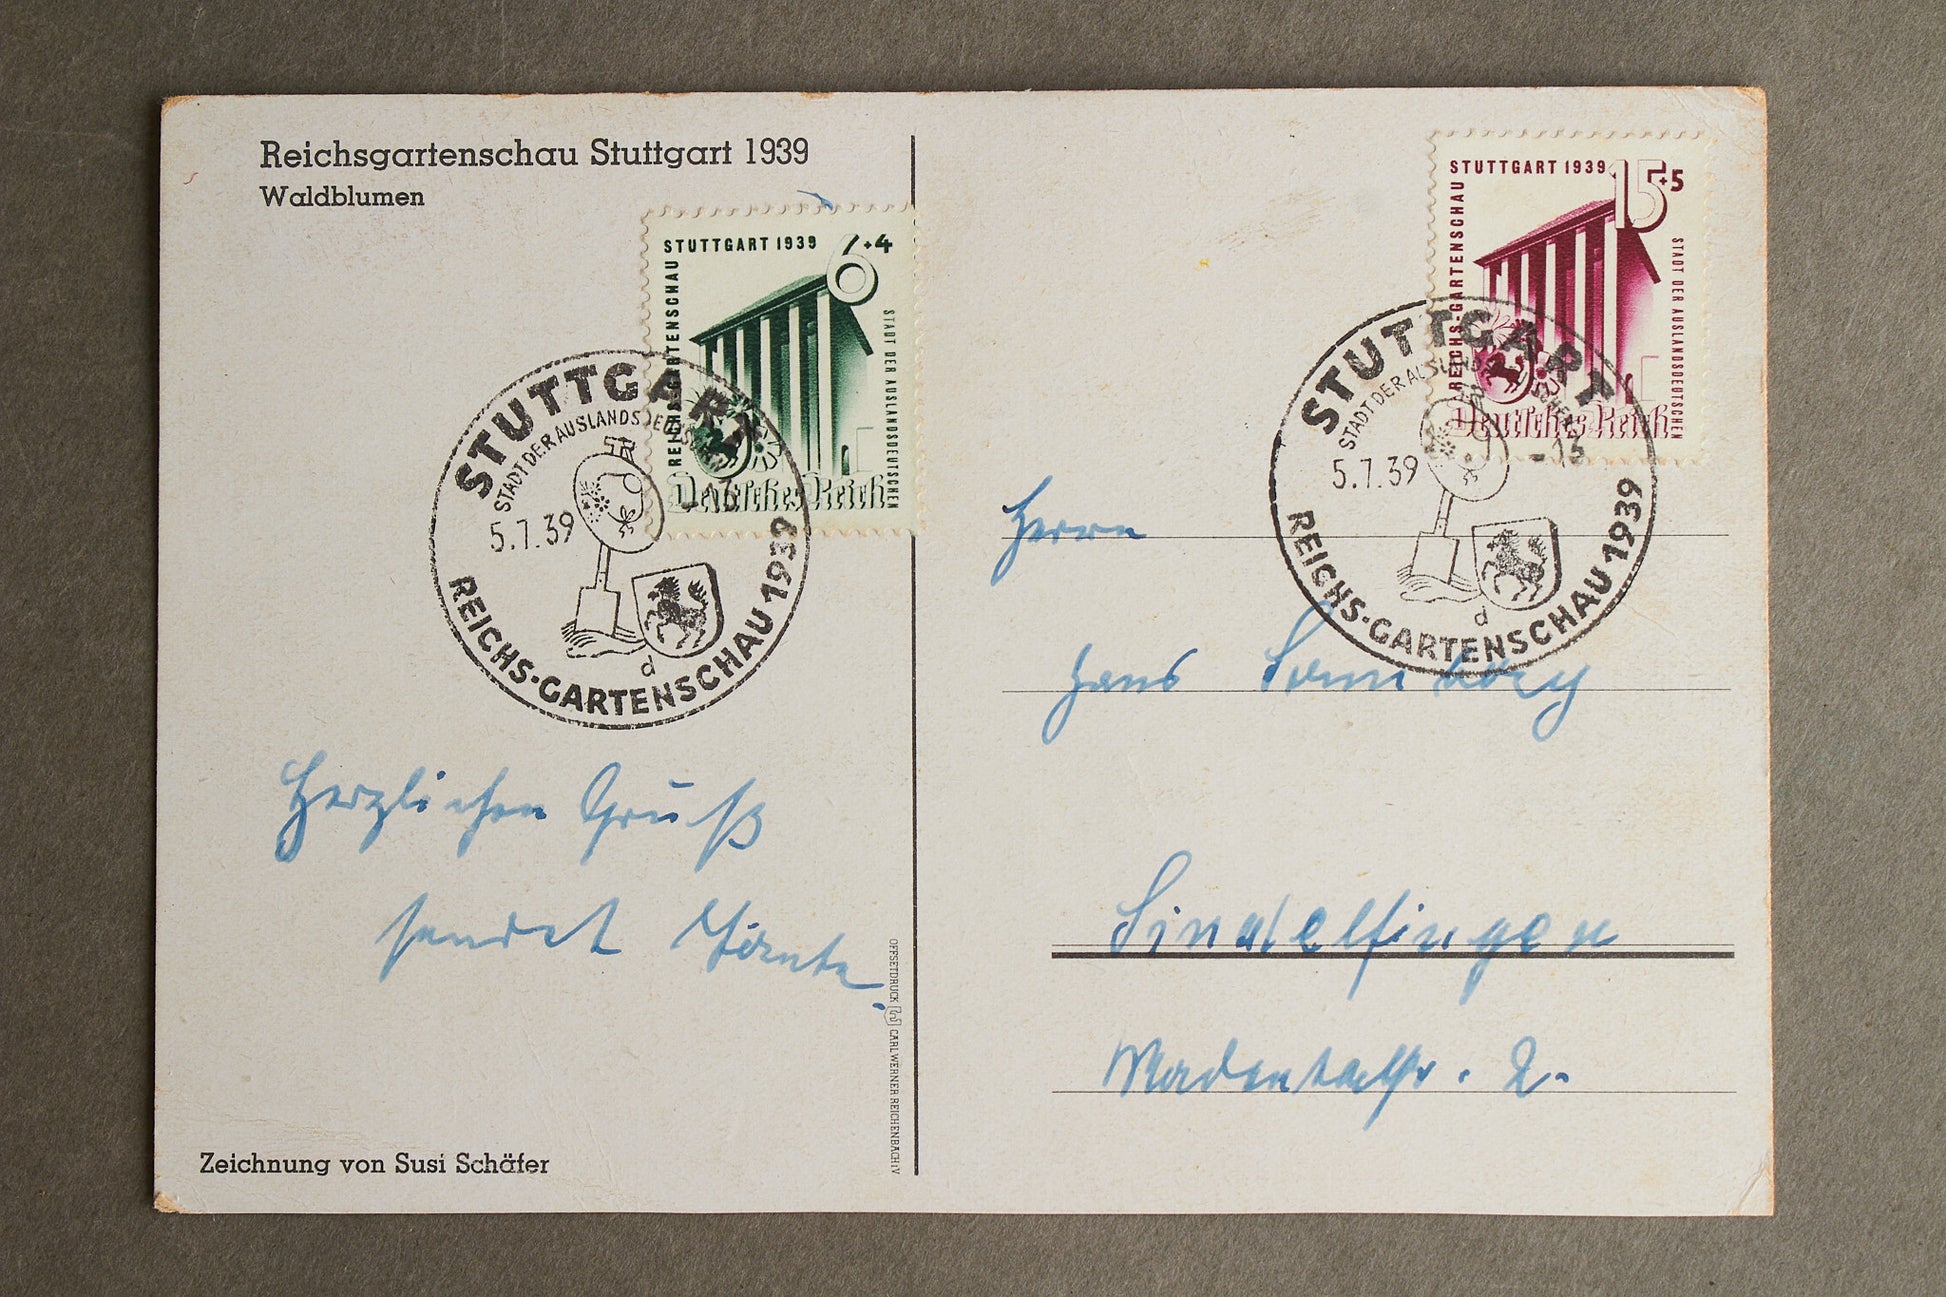 Reichsgartenschau Stuttgart 1939
Waldblumen
STUTTGART 1939
6+4
REICHS-GARTENSCHAU
STADT DER AUSLANDSDEUTSCHEN
Deutsches Reich
STUTTGART
STADT DER AUSLANDSDEUTSCHEN
5.7.39
d
REICHS-GARTENSCHAU 1939
Herzlichen Gruß
sendet Tante.
Zeichnung von Susi Schäfer
OFFSETDRUCK CARL WERNER REICHENBACH i V
STUTTGART 1939
15+5
REICHS-GARTENSCHAU
STADT DER AUSLANDSDEUTSCHEN
Deutsches Reich
STUTTGART
STADT DER AUSLANDSDEUTSCHEN
5.7.39 -15
d
REICHS-GARTENSCHAU 1939
Herrn
Hans
Sindelfingen
2.